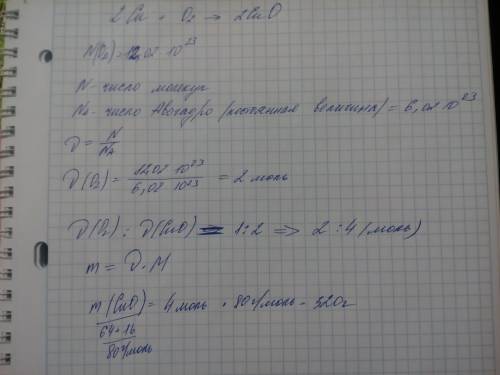 2Cu + O₂ → 2CuO
N(O₂) = 12,02 10²³
N - число молекул
Nₐ - число Авогадро (постоянная величина) = 6,02 10²³
ν = N/Nₐ
ν(O₂) = 12,02 10²³ / 6,02 10²³ = 2 моль
ν(O₂) : ν(CuO) = 1:2 => 2 : 4 (моль)
m = ν · M
m (CuO) = 4 моль · 80 г/моль = 320г
64+16
80 г/моль